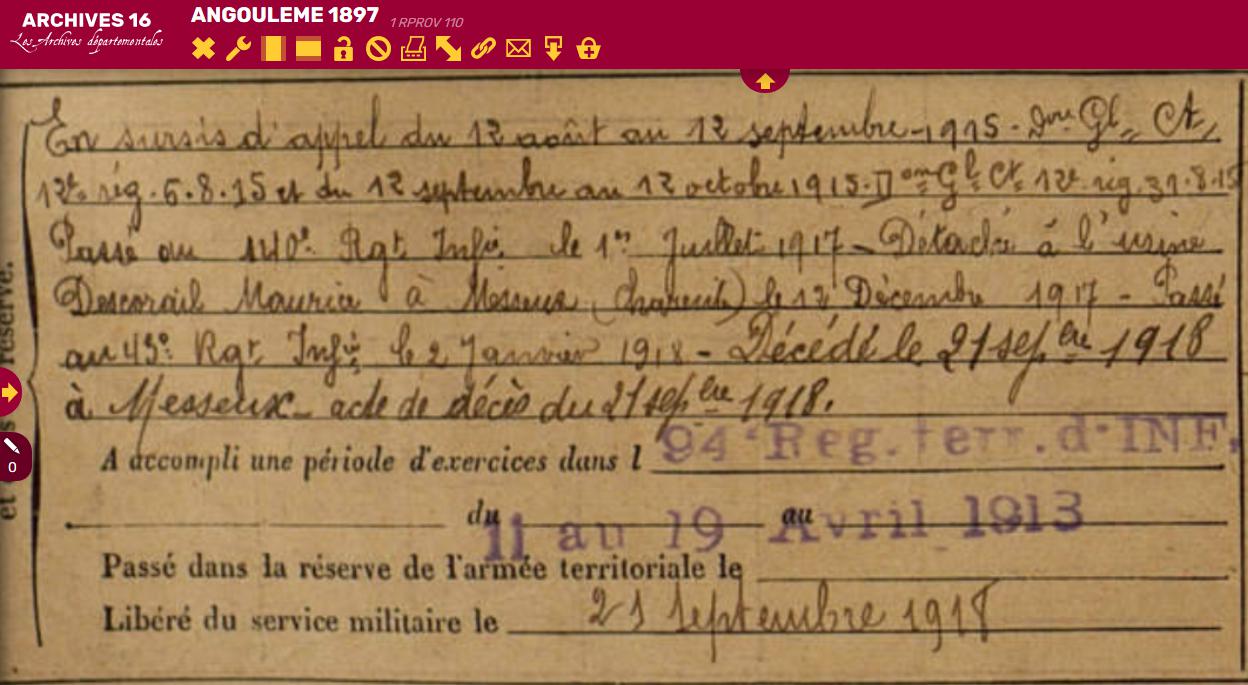 ARCHIVES 16
Les Archives départementales
ANGOULEME 1897
1 RPROV 110
En sursis d'appel du 12 août au 12 septembre 1915 - Don Gl,, Ct,
12e rég. 6.8.15 et du 12 septembre au 12 octobre 1915. Don Gl Ct 12e rég. 31.8.15
Passé au 140e Rgt Infie le 1er Juillet 1917 - Détaché à l'usine
Maurice à Messeux (Charente) le 12 Décembre 1917 - Passé
au 43e Rgt Infie le 2 Janvier 1918 - Décédé le 21 sepbre 1918
à Messeux - acte de décès du 21 sepbre 1918.
A accompli une période d'exercices dans l 94e Reg. terr. d'INF.
du 11 au 19 au Avril 1913
Passé dans la réserve de l'armée territoriale le
Libéré du service militaire le 21 Septembre 1918
et réserve.
0